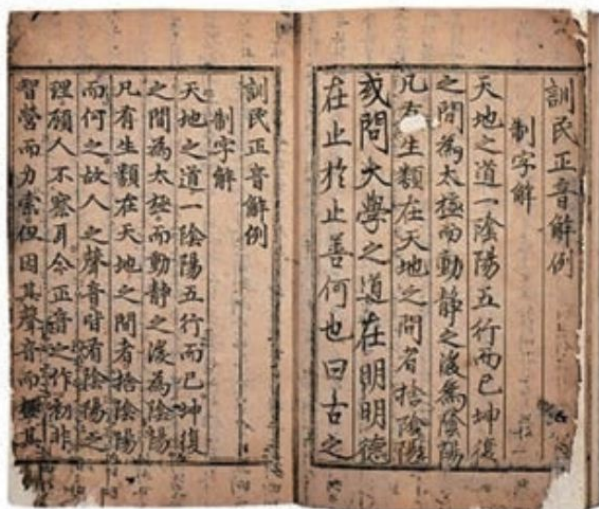 訓民正音解例
制字解
天地之道一陰陽五行而已坤復
之間為太極而動静之後為陰陽
凡有生類在天地之間者捨陰陽
或問大學之道在明明德
在止於止善何也曰古之
訓民正音解例
制字解
天地之道一陰陽五行而已坤復
之間為太極而動静之後為陰陽
凡有生類在天地之間者捨陰陽
而何之故人之聲音皆有陰陽之
理顧人不察耳今正音之作初非
智營而力索但因其聲音而極其